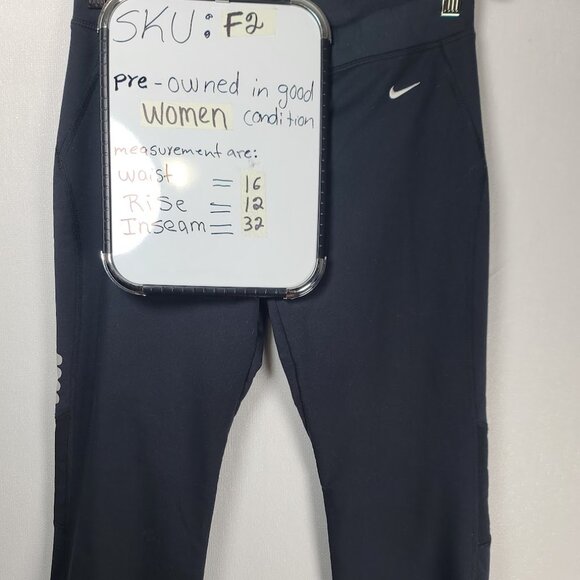 SKU: F2
pre-owned in good
women condition
measurement are:
Waist = 16
Rise = 12
Inseam = 32